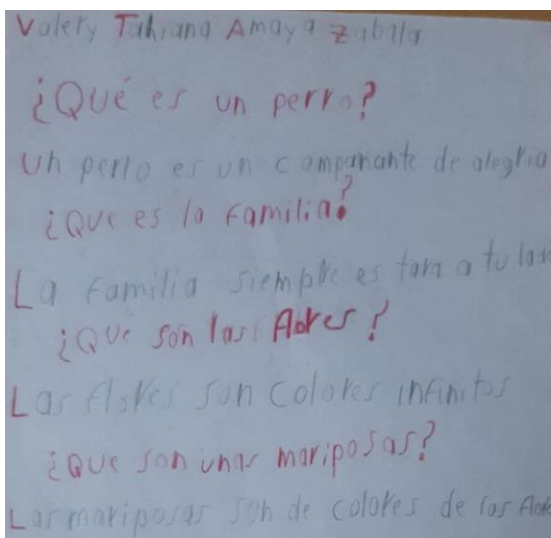 Valery Tahiana Amaya Zabala
¿Qué es un perro?
Un perro es un compañante de alegria
¿Que es la familia?
La familia siempre es tara a tu lado
¿Que son las flores?
Las flores son colores infinitos
¿Que son unas mariposas?
Las mariposas son de colores de las flore